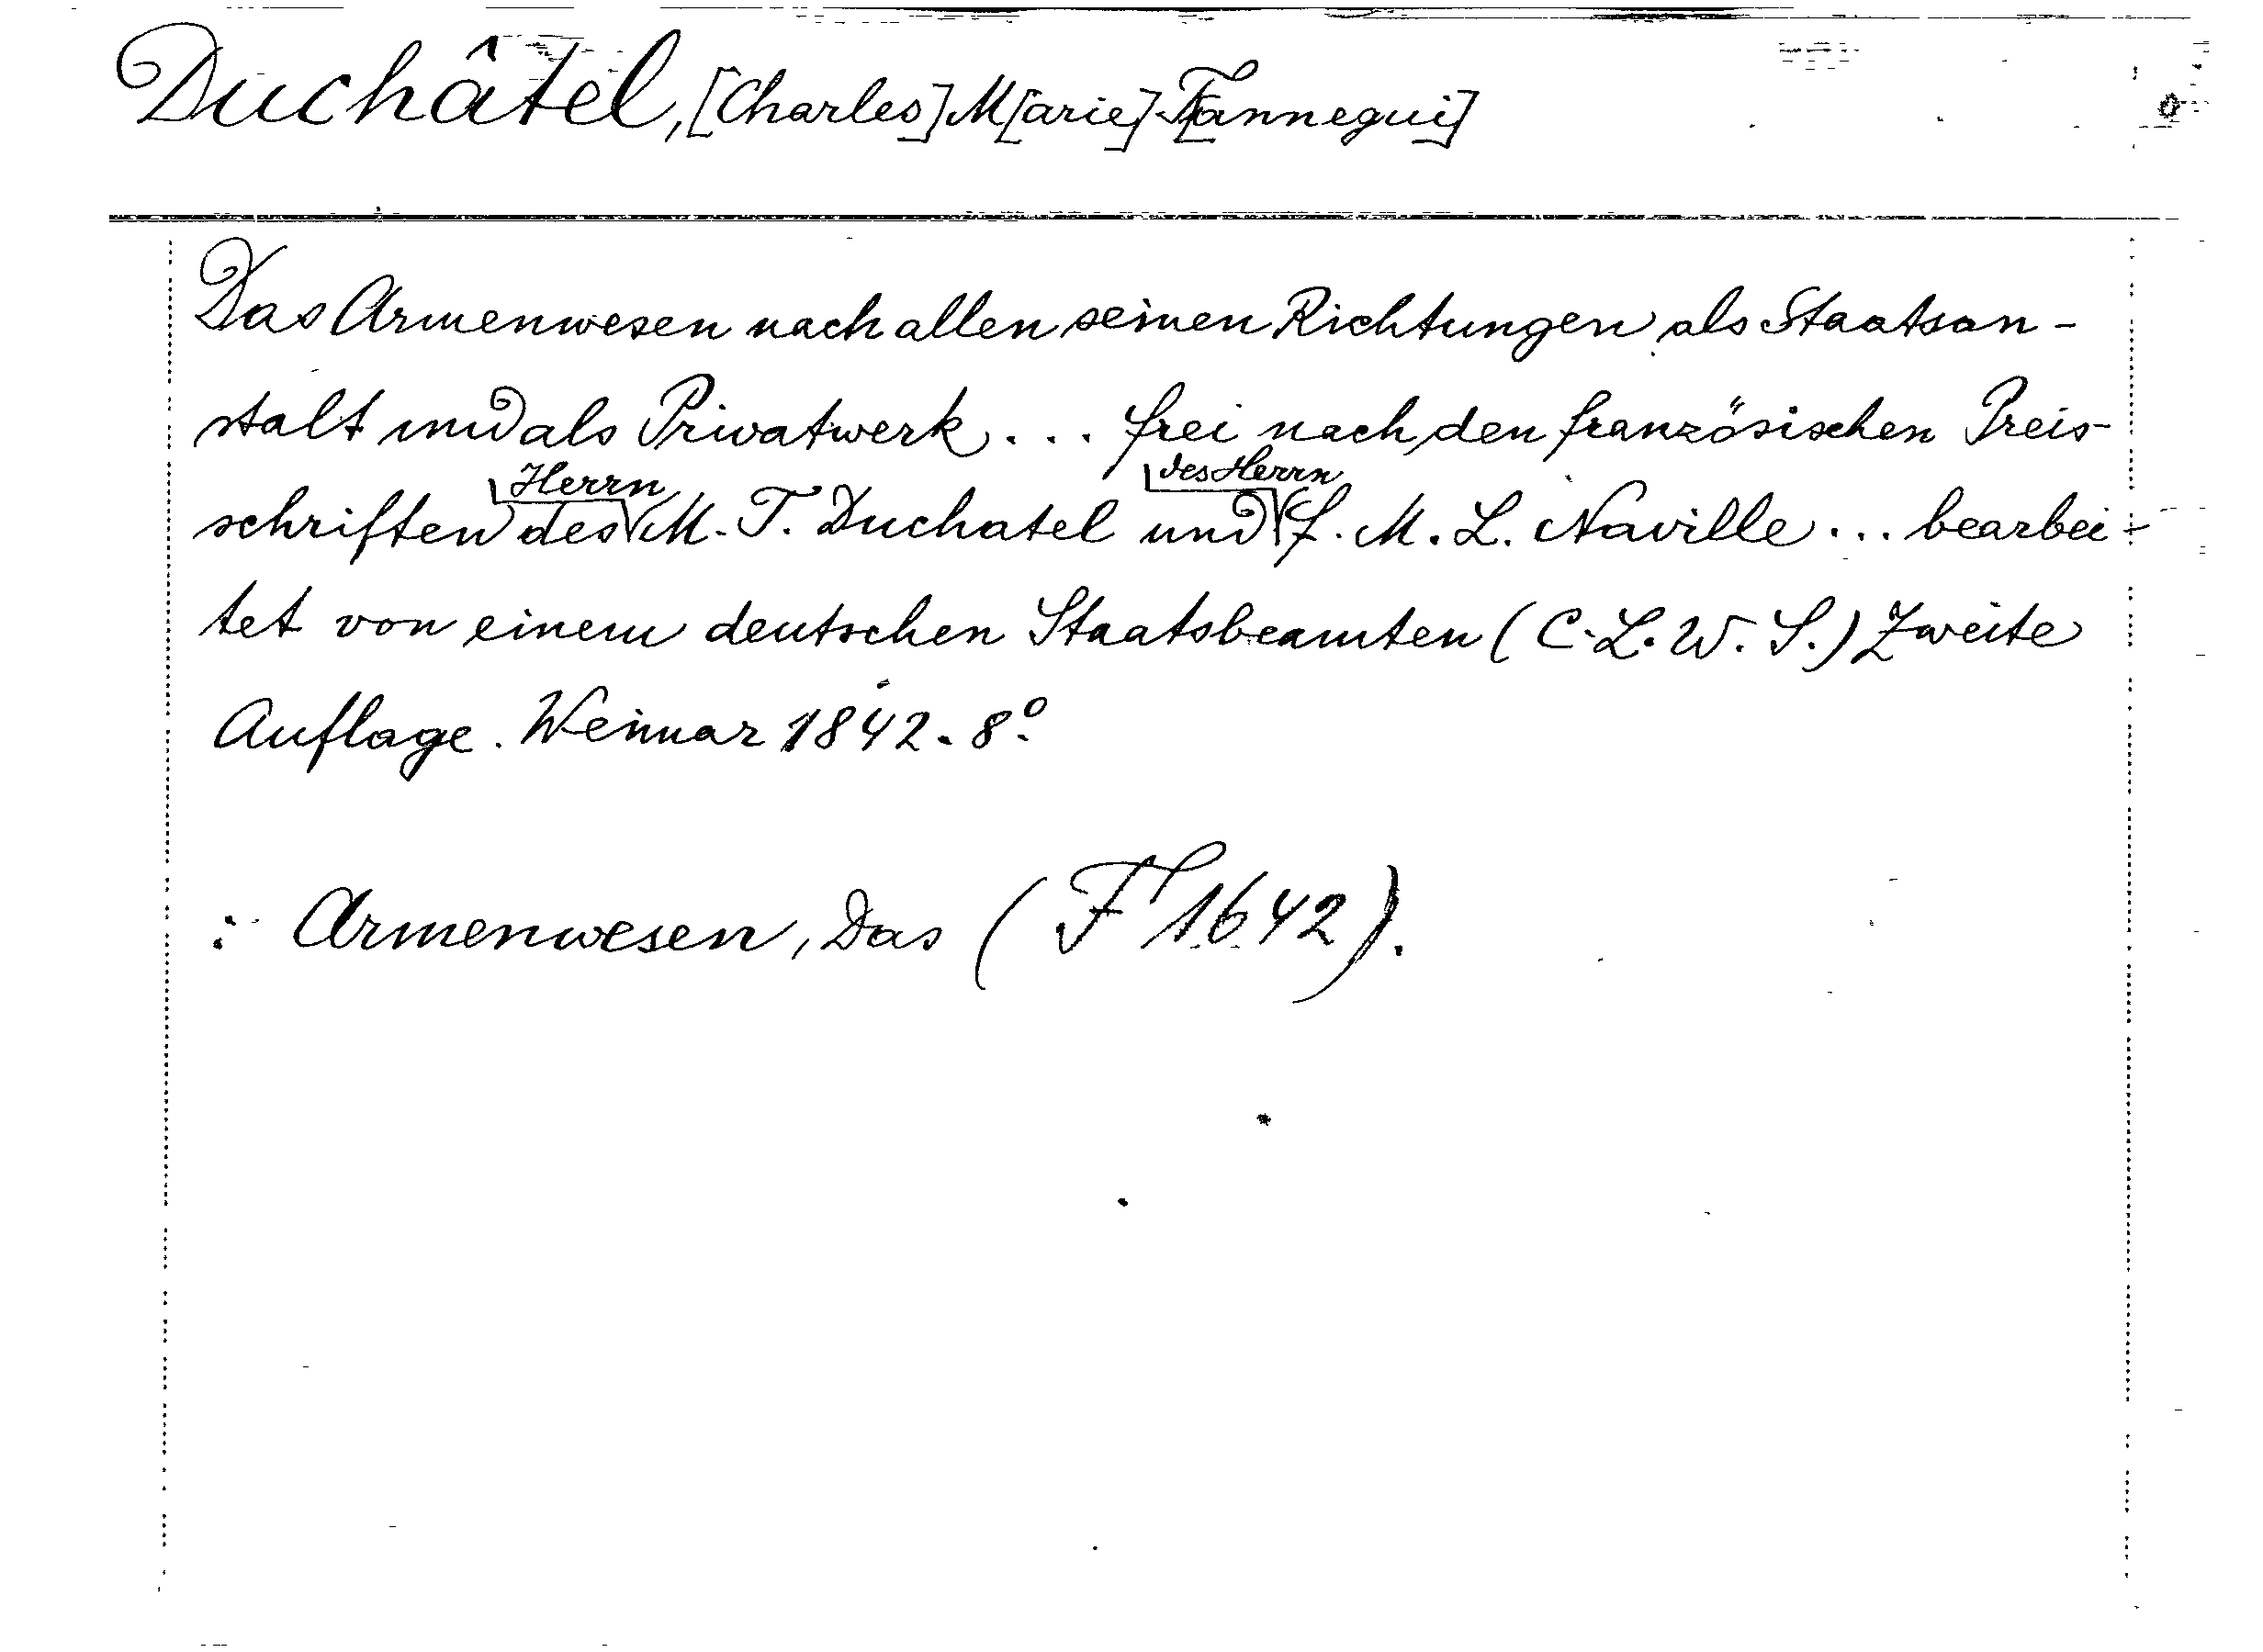 Duchâtel, [Charles] M[arie]-T[annegui]
Das Armenwesen nach allen seinen Richtungen als Staatsan-
stalt und als Privatwerk... frei nach den französischen Preis-
schriften des Herrn M. T. Duchatel und des Herrn F. M. L. Naville... bearbei-
tet von einem deutschen Staatsbeamten (C. L. W. S.) Zweite
Auflage. Weimar 1842. 8°.
: Armenwesen, Das (F 1642).